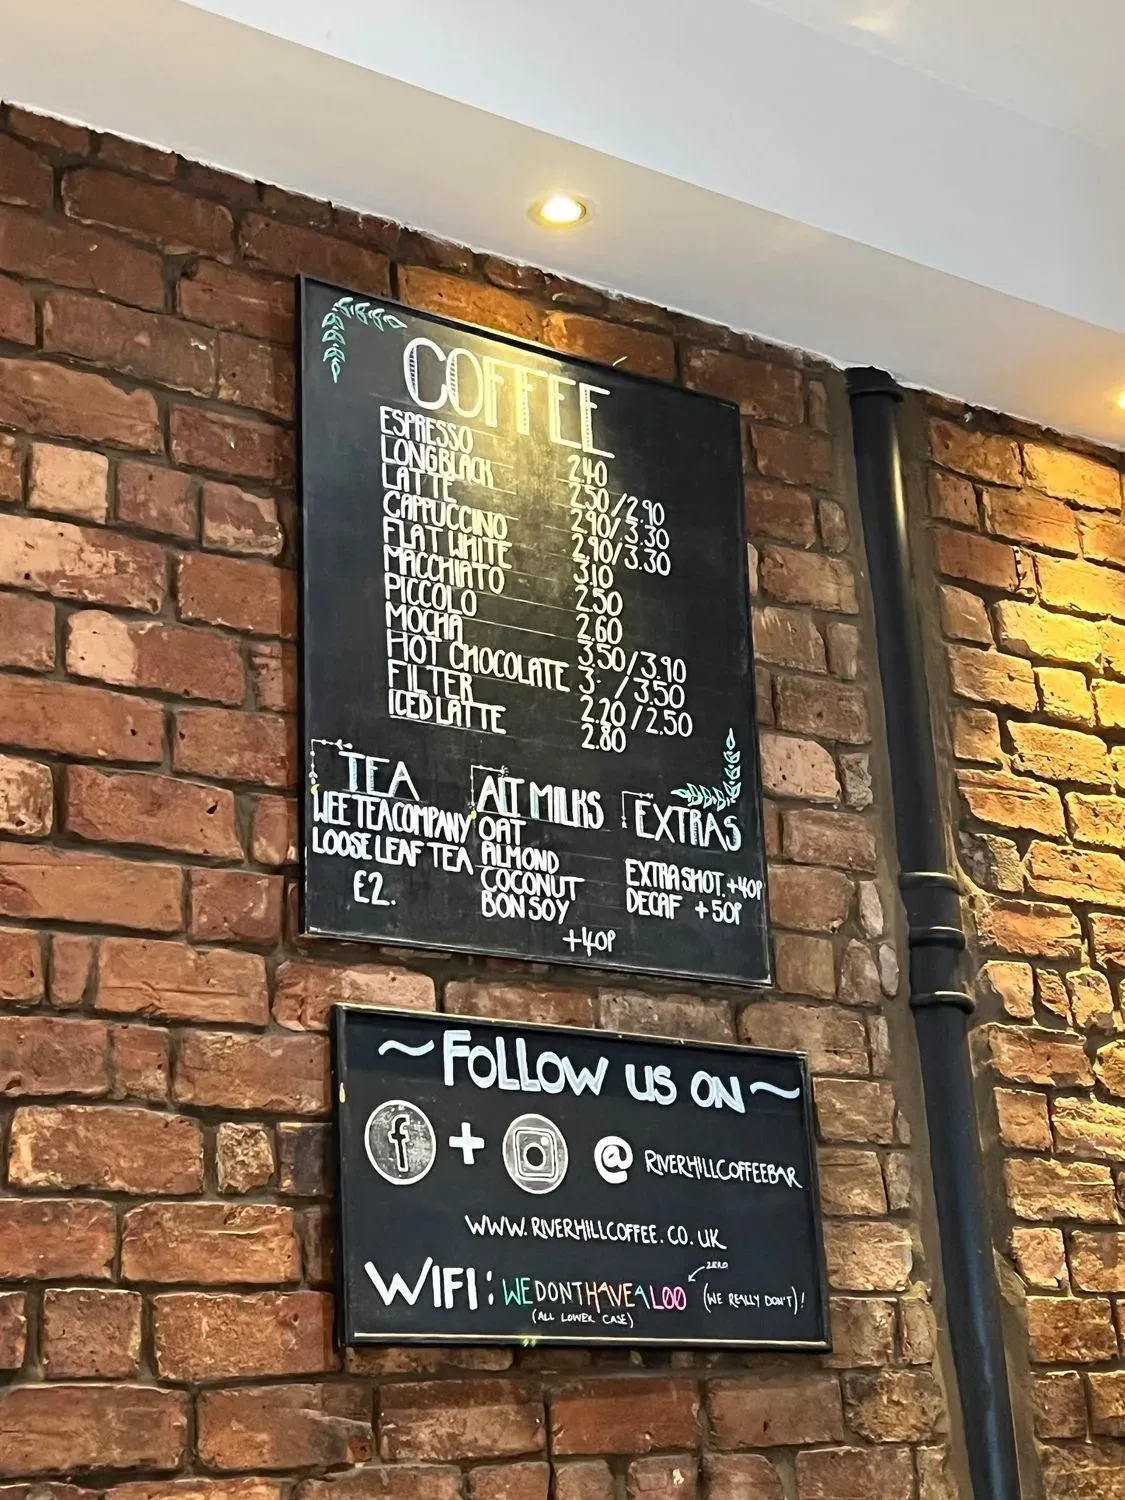 COFFEE
ESPRESSO 2.40
LONGBLACK 2.50/2.90
LATTE 2.90/3.30
CAPPUCCINO 2.90/3.30
FLAT WHITE 3.10
MACCHIATO 2.50
PICCOLO 2.60
MOCHA 3.50/3.90
HOT CHOCOLATE 3. /3.50
FILTER 2.20/2.50
ICED LATTE 2.80
TEA
WEE TEA COMPANY
LOOSE LEAF TEA
£2.
ALT MILKS
OAT
ALMOND
COCONUT
BONSOY
+40P
EXTRAS
EXTRA SHOT. +40P
DECAF +50P
~FOLLOW US ON~
f + @RIVERHILLCOFFEEBAR
WWW.RIVERHILLCOFFEE.CO.UK
ZERO
WIFI: WEDONTHAVEALOO (WE REALLY DON'T)!
(ALL LOWER CASE)